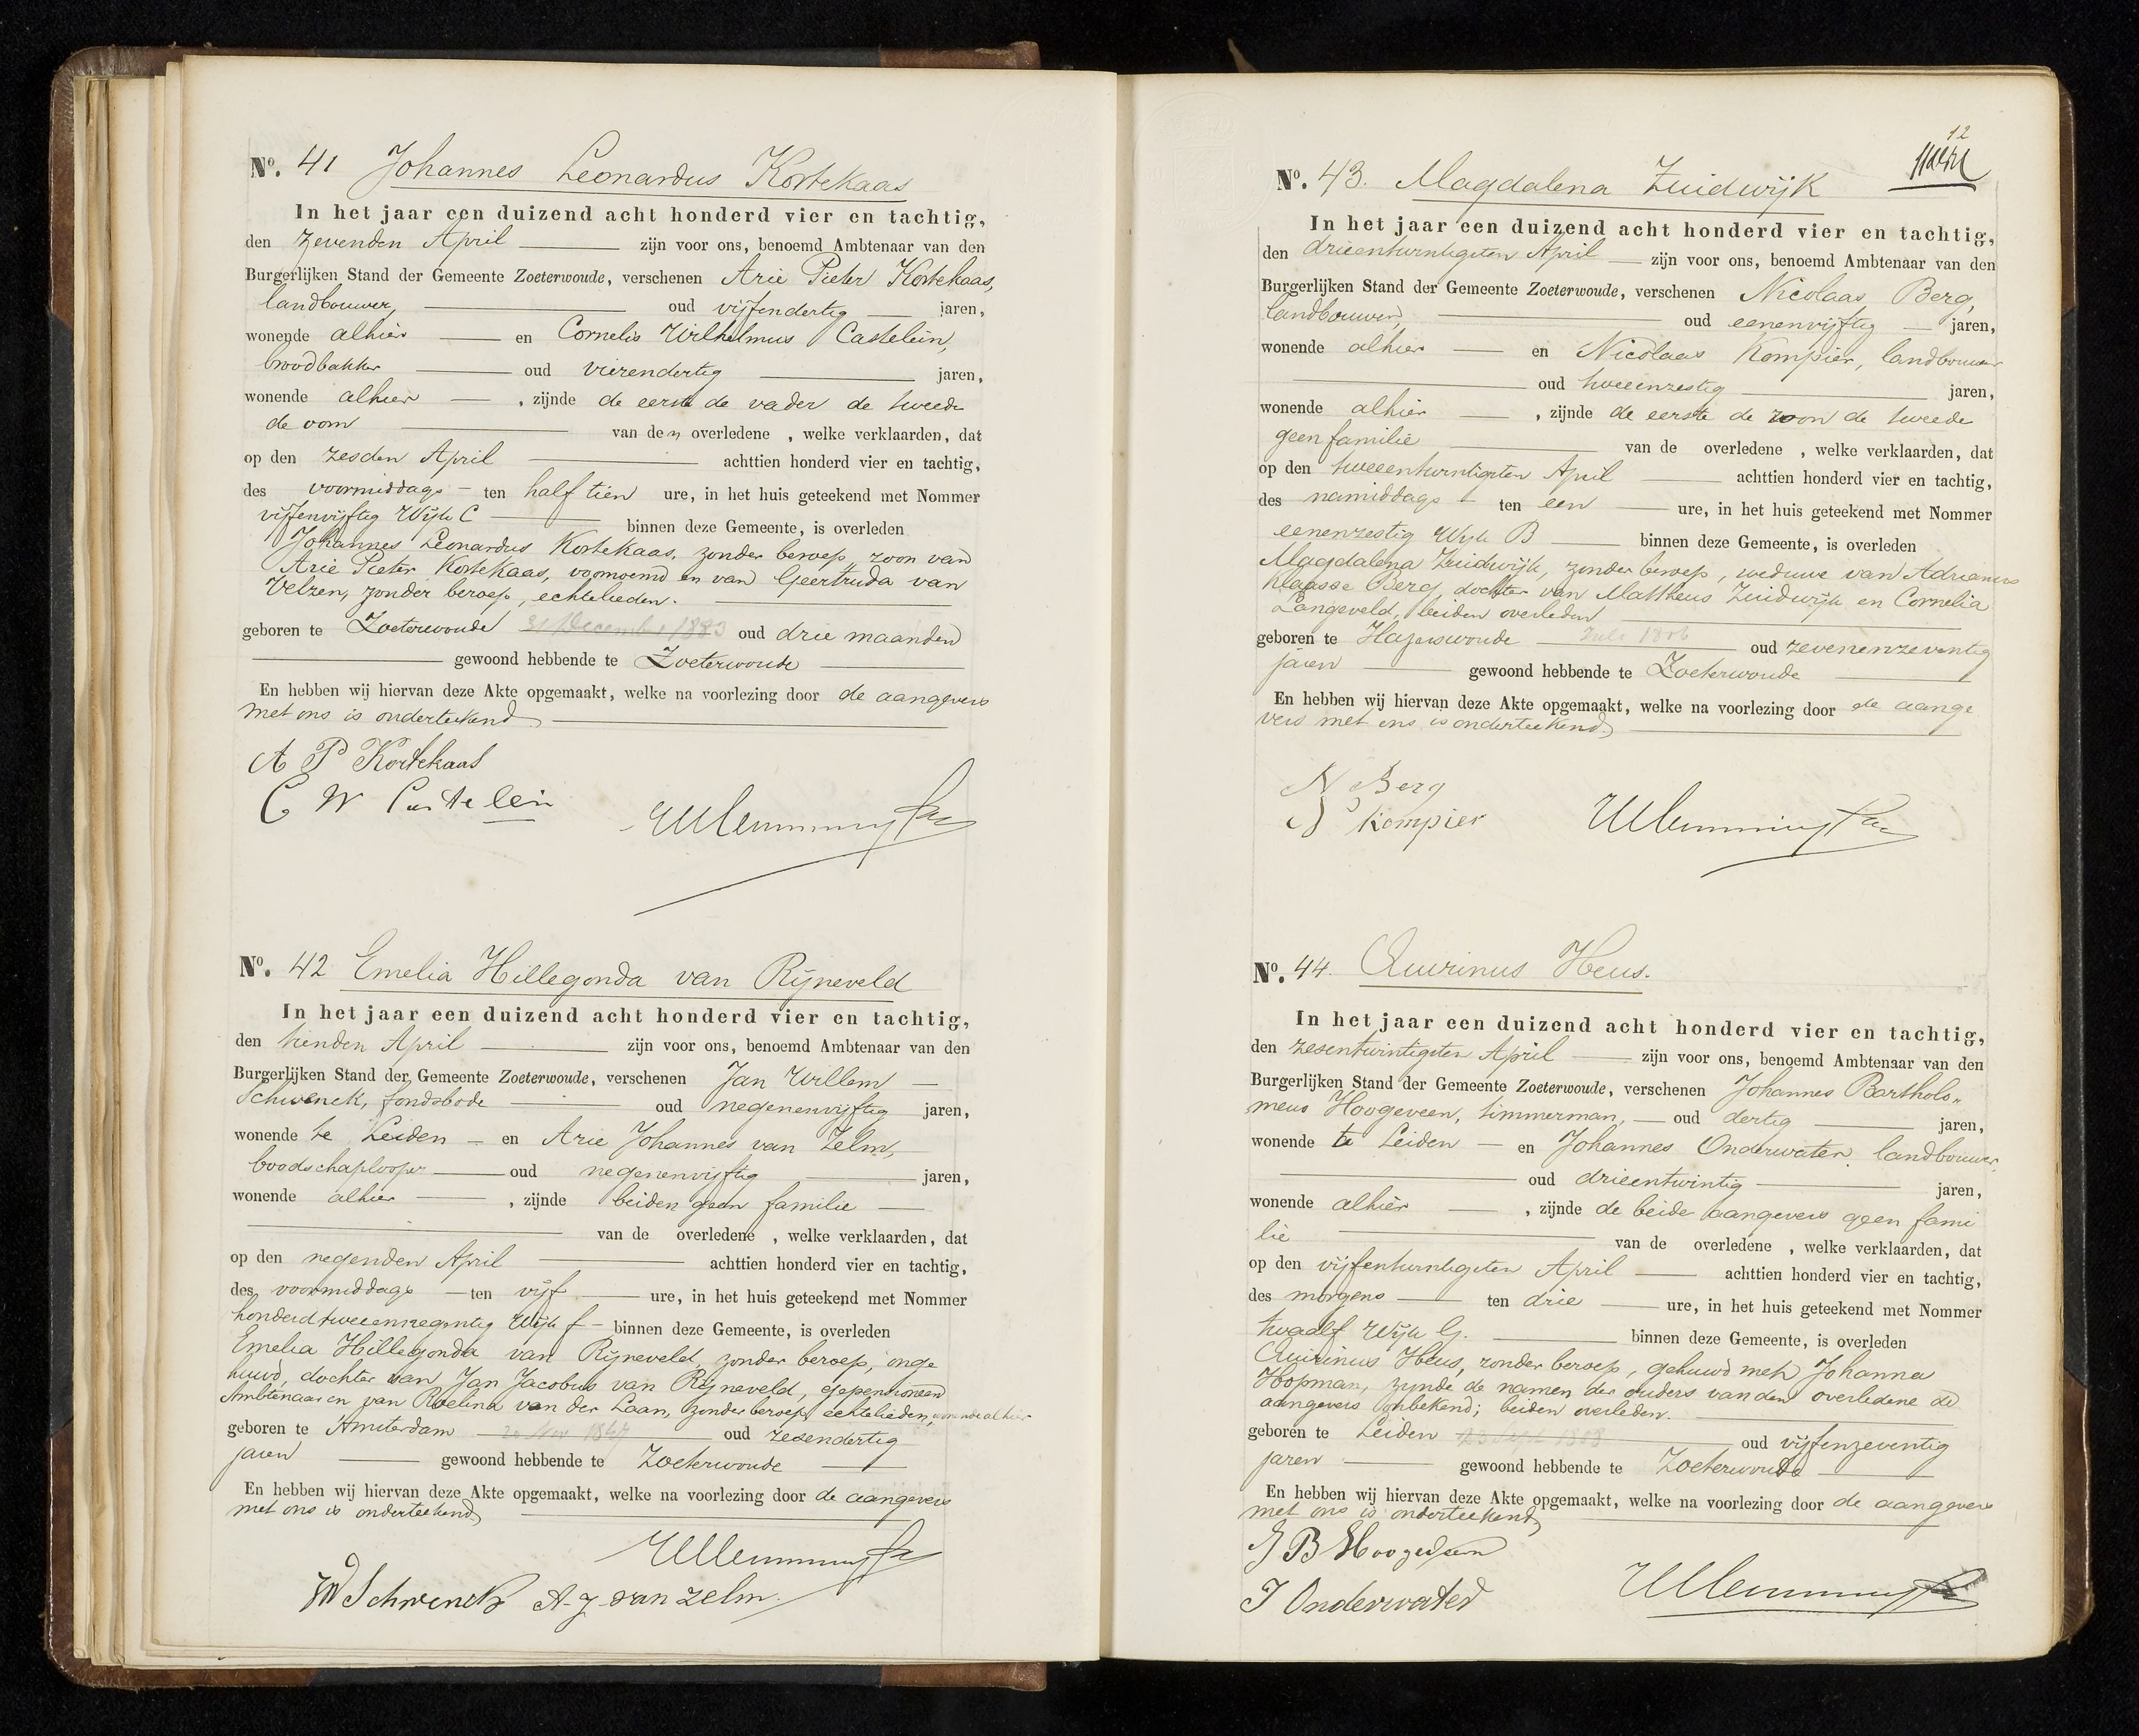 No. 41 Johannes Leonardus Kortekaas
In het jaar een duizend acht honderd vier en tachtig,
den zevenden April zijn voor ons, benoemd Ambtenaar van den
Burgerlijken Stand der Gemeente Zoeterwoude, verschenen Arie Pieter Kortekaas,
landbouwer, oud vijfendertig jaren,
wonende alhier en Cornelis Wilhelmus Castelein,
broodbakker oud vierendertig jaren,
wonende alhier , zijnde de eerste de vader de tweede
de oom van den overledene , welke verklaarden, dat
op den zesden April achttien honderd vier en tachtig,
des voormiddags ten half tien ure, in het huis geteekend met Nommer
vijfenvijftig Wijk C binnen deze Gemeente, is overleden
Johannes Leonardus Kortekaas, zonder beroep, zoon van
Arie Pieter Kortekaas, voornoemd en van Geertruda van
Velzen, zonder beroep, echtelieden.
geboren te Zoeterwoude 31 December 1883 oud drie maanden
gewoond hebbende te Zoeterwoude
En hebben wij hiervan deze Akte opgemaakt, welke na voorlezing door de aangevers
met ons is onderteekend
A P Kortekaas
C W Castelein
No. 42 Emelia Hillegonda van Rijneveld
In het jaar een duizend acht honderd vier en tachtig,
den tienden April zijn voor ons, benoemd Ambtenaar van den
Burgerlijken Stand der Gemeente Zoeterwoude, verschenen Jan Willem
Schwenck, fondsbode oud negenenvijftig jaren,
wonende te Leiden en Arie Johannes van Zelm,
boodschaplooper oud negenenvijftig jaren,
wonende alhier , zijnde beiden geen familie
van de overledene , welke verklaarden, dat
op den negenden April achttien honderd vier en tachtig,
des voormiddags ten vijf ure, in het huis geteekend met Nommer
honderdtweeennegentig Wijk f binnen deze Gemeente, is overleden
Emelia Hillegonda van Rijneveld, zonder beroep, onge
huwd, dochter van Jan Jacobus van Rijneveld, gepensioneerd
Ambtenaar en van Roelina van der Laan, zonder beroep, echtelieden, wonende alhier
geboren te Amsterdam 20 Nov 1847 oud zesendertig
jaren gewoond hebbende te Zoeterwoude
En hebben wij hiervan deze Akte opgemaakt, welke na voorlezing door de aangevers
met ons is onderteekend
JW Schwenck A. J. van Zelm.
12
No. 43. Magdalena Zuidwijk
In het jaar een duizend acht honderd vier en tachtig,
den drieentwintigsten April zijn voor ons, benoemd Ambtenaar van den
Burgerlijken Stand der Gemeente Zoeterwoude, verschenen Nicolaas Berg,
landbouwer, oud eenenvijftig jaren,
wonende alhier en Nicolaas Kompier, landbouwer
oud tweeenzestig jaren,
wonende alhier , zijnde de eerste de zoon de tweede
geen familie van de overledene , welke verklaarden, dat
op den tweeentwintigsten April achttien honderd vier en tachtig,
des namiddags ten een ure, in het huis geteekend met Nommer
eenenzestig Wijk B binnen deze Gemeente, is overleden
Magdalena Zuidwijk, zonder beroep, weduwe van Adrianus
Klaasse Berg, dochter van Mattheus Zuidwijk en Cornelia
Langeveld, beiden overleden
geboren te Hazerswoude Juli 1806 oud zevenenzeventig
jaren gewoond hebbende te Zoeterwoude
En hebben wij hiervan deze Akte opgemaakt, welke na voorlezing door de aange
vers met ons is onderteekend
N Berg
N Kompier
No. 44. Quirinus Heus.
In het jaar een duizend acht honderd vier en tachtig,
den zesentwintigsten April zijn voor ons, benoemd Ambtenaar van den
Burgerlijken Stand der Gemeente Zoeterwoude, verschenen Johannes Bartholo„
meus Hoogeveen, timmerman, oud dertig jaren,
wonende te Leiden en Johannes Onderwater, landbouwer,
oud drieentwintig jaren,
wonende alhier , zijnde de beide aangevers geen fami
lie van de overledene , welke verklaarden, dat
op den vijfentwintigsten April achttien honderd vier en tachtig,
des morgens ten drie ure, in het huis geteekend met Nommer
twaalf Wijk G. binnen deze Gemeente, is overleden
Quirinus Heus, zonder beroep, gehuwd met Johanna
Hopman, zijnde de namen der ouders van den overledene de
aangevers onbekend; beiden overleden.
geboren te Leiden Sept 1808 oud vijfenzeventig
jaren gewoond hebbende te Zoeterwoude
En hebben wij hiervan deze Akte opgemaakt, welke na voorlezing door de aangevers
met ons is onderteekend
J B Hoogeveen
J Onderwater